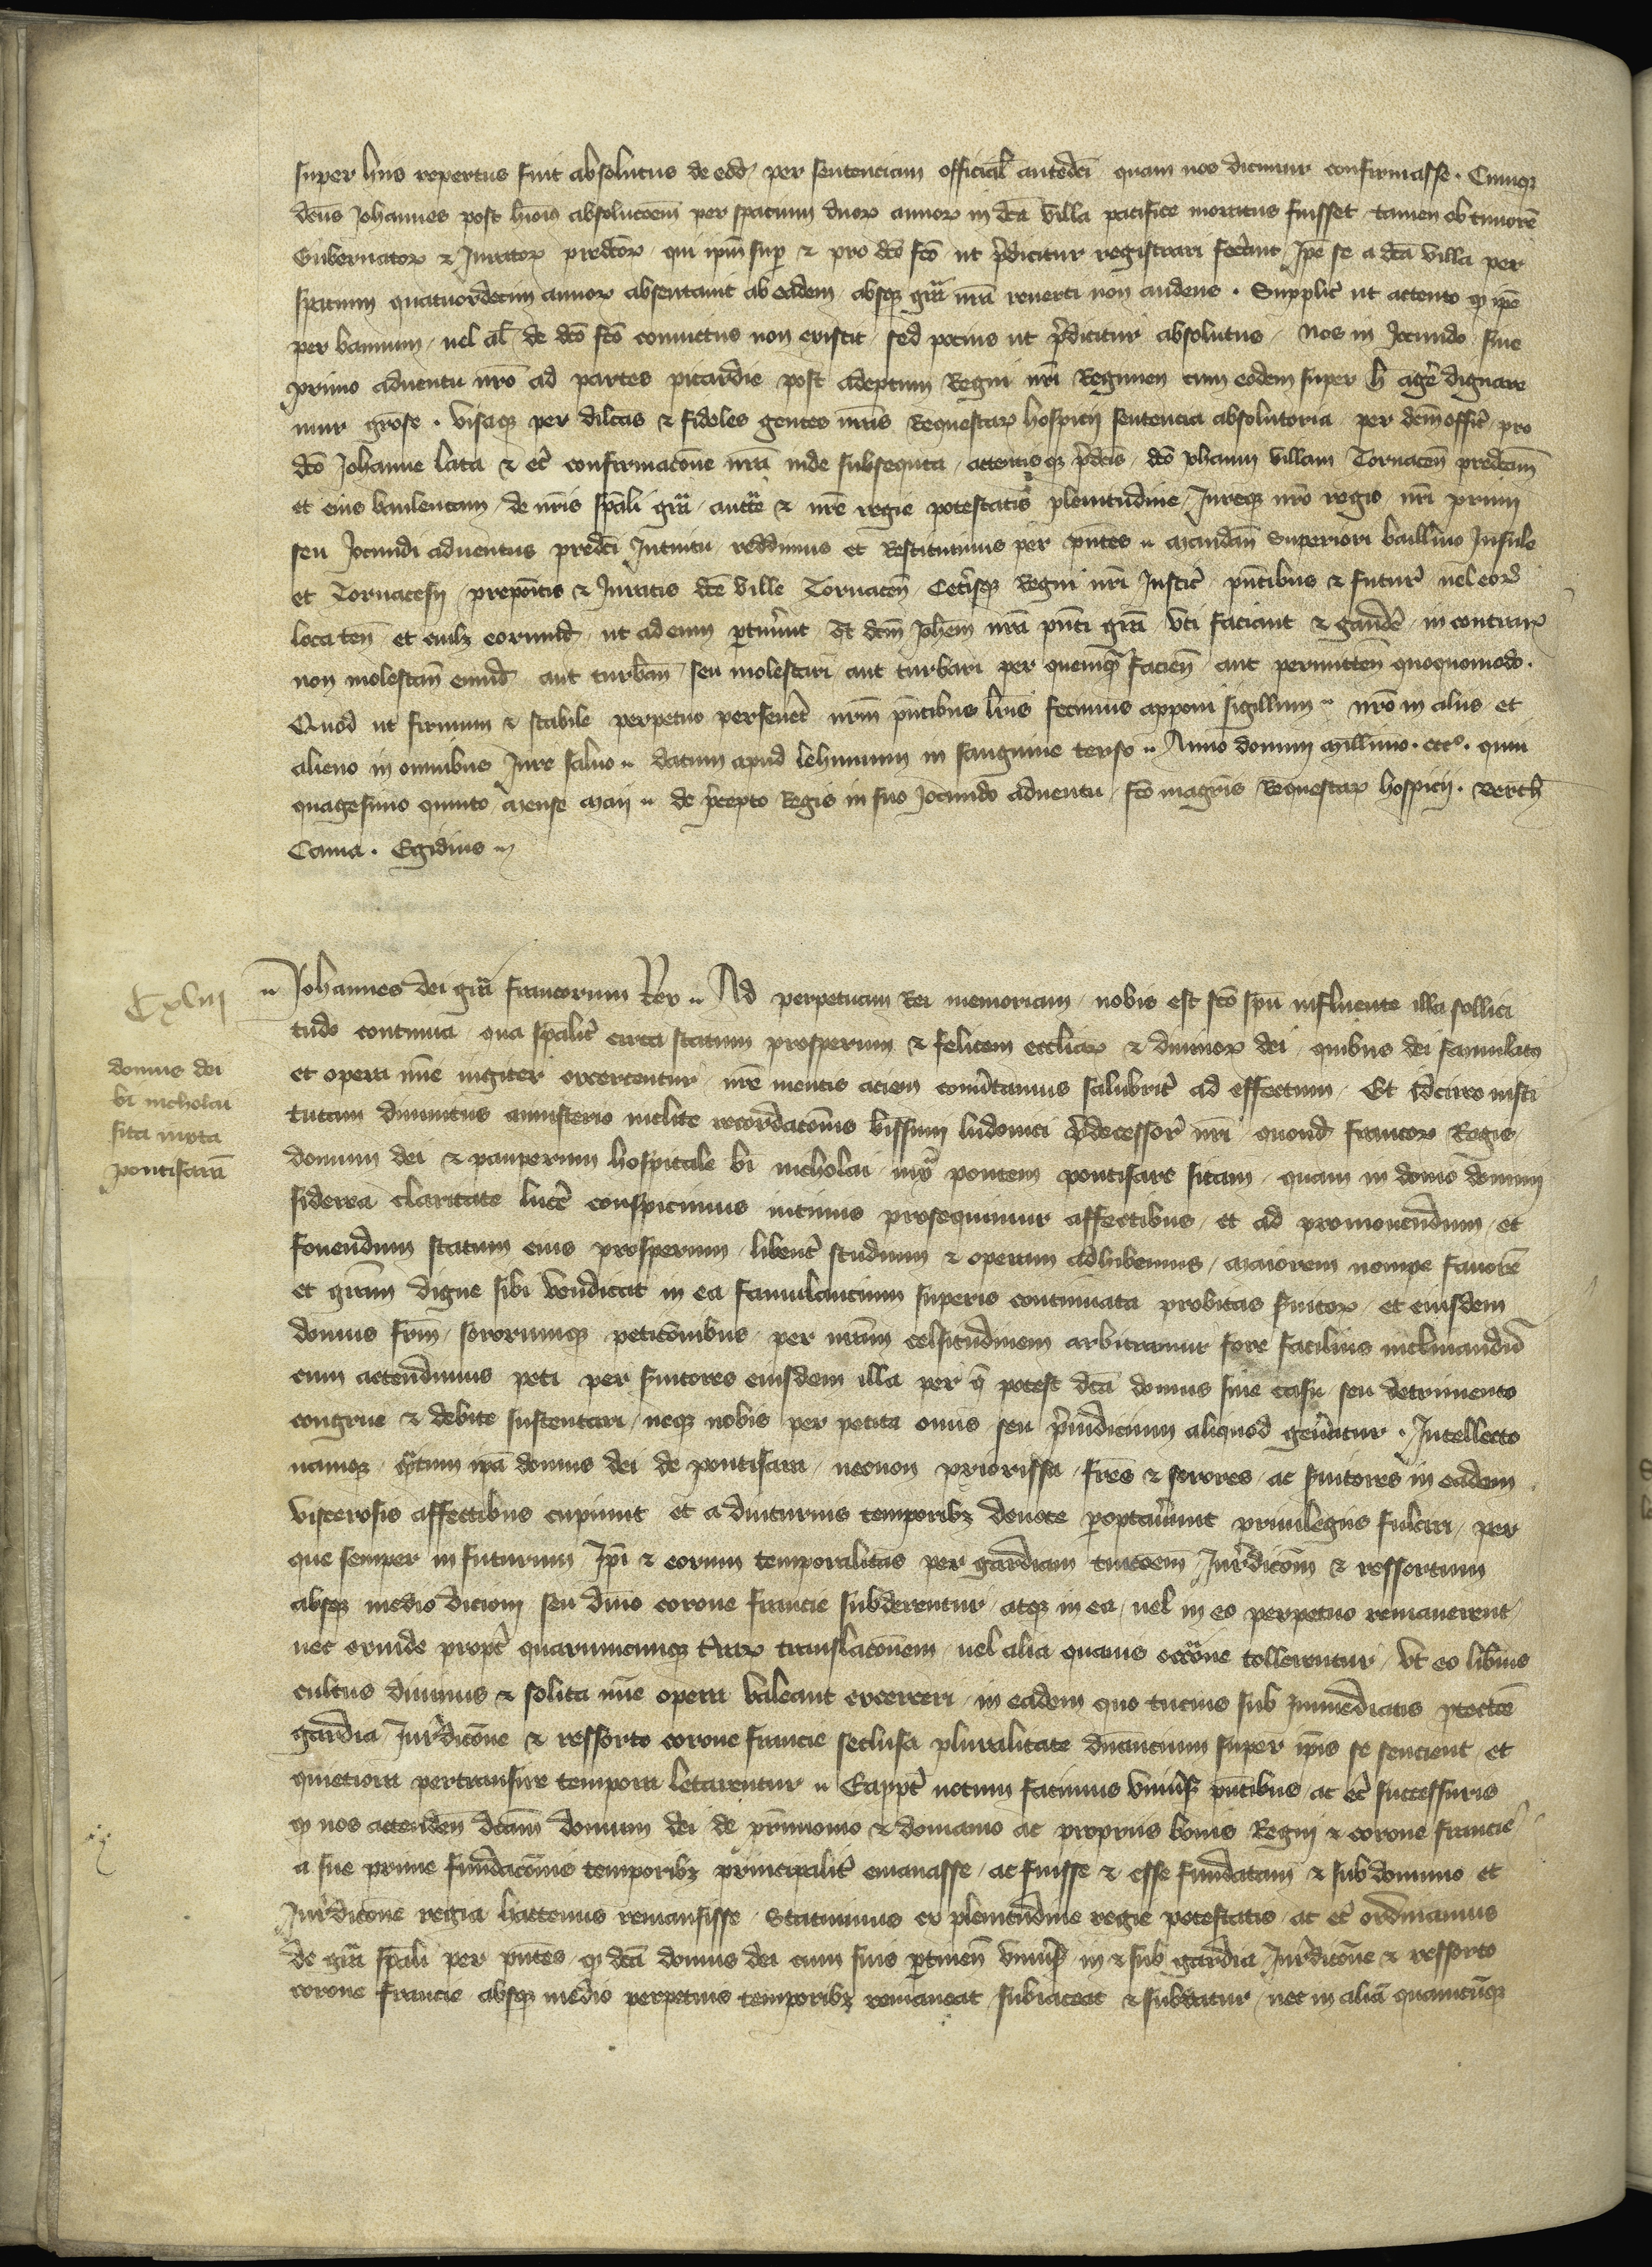 super hiis repertus fuit absolutus de eod̄ per sentenciam official̄ anted̄ci quam nos dicimur confirmasse. Cumqꝫ
dc̄us Johannes post hmōi absolucōem per spatium duoꝝ annoꝝ in dc̄a villa pacifice moratus fuisset tamen ob timorē
Gubernatoꝝ ⁊ Juratoꝝ predc̄oꝝ qui ip̄m sup̄ ⁊ pro dc̄o fc̄o ut p̄dicitur registrari fec̄unt Ip̄e se a dc̄a villa per
spatium quatuordecim annoꝝ absentavit ab eadem absqꝫ gr̄a nr̄a reverti non audens. Supplic̄ ut attento ꝙ ip̄e
per bannum vel al̄ de dc̄o fc̄o convictus non extitit sed pocius ut p̄dicitur absolutus nos in Jocundo sive
primo adventu nr̄o ad partes picardie post adeptum Regni nr̄i Regimen cum eodem super h̄ agē dignare
mur grōse. Visaqꝫ per dilc̄as ⁊ fideles gentes nr̄as Requestaꝝ hospicij sentencia absolutoria per dc̄m offic̄ pro
dc̄o Johanne lata ⁊ ec̄ confirmacōne nr̄a inde subsequta attentisqꝫ p̄dc̄is dc̄o Johanni villam Tornacen̄ predc̄am
et eius banleucam de nr̄is sp̄ali gr̄a auct̄te ⁊ nr̄e regie potestatis plenitudine Jureqꝫ nr̄o regio nr̄i primi
seu Jocundi adventus predc̄i Intuitu reddimus et Restituimus per p̄ntes mandan̄ Superiori baillivo Insule
et Tornacesij prepōitis ⁊ Juratis dc̄e ville Tornacen̄ Cet̄isqꝫ Regni nr̄i Justic̄ p̄ntibus ⁊ futur̄ vel eoꝝ
loca ten̄ et cuilꝫ eorumd̄ ut ad eum ꝑtin̄int qt̄ dc̄m Joh̄em nr̄a p̄nti gr̄a uti faciant ⁊ gaudē in contraꝝ
non molestan̄ eumd̄ aut turban̄ seu molestari aut turbari per quemqꝫ facien̄ aut permitten̄ quoquomodo.
Quod ut firmum ⁊ stabile perpetuo persevēt nr̄m p̄ntibus lr̄is fecimus apponi sigillum nr̄o in aliis et
alieno in omnibus Jure salvo datum apud lehunum in sanguine terso Anno domini millīmo. ccc°. quin
quagesimo quinto mense maij de p̄cepto Regis in suo Jocundo adventu fc̄o magr̄is Requestaꝝ hospicij. Berth̄
Cama. Egidius
Cxlııȷ
domus dei
bī nicholai
sita iuxta
pontisarā
Johannes dei gr̄a francorum Rex Ad perpetuam Rei memoriam nobis est sc̄o sp̄u influente illa sollici
tudo continua qua sp̄alit̄ circa statum prosperum ⁊ felicem eccl̄iaꝝ ⁊ divinoꝝ dei quibus dei famulatꝯ
et opera mīe iugiter exercentur nr̄e mentis aciem cōmutamus salubrit̄ ad effectum Et idcirco insti
tutam divinitus ministerio inclite recordacōnis bīssimi ludovici p̄decessor̄ nr̄i quond̄ francoꝝ Regis
domum dei ⁊ pauperum hospitale bī nicholai iuxᵃ pontem pontisare sitam quam in domo domini
siderea claritate lucē conspicimus intimis prosequimur affectibus et ad promovendum et
fovendum statum eius prosperum libent̄ studium ⁊ operam adhibemus maiorem nempe favorē
et gr̄am digne sibi vendicat in ea famulancium superis continuata probitas s̄vitoꝝ et eiusdem
domus fr̄m sororumqꝫ peticōnibus per nr̄am celsitudinem arbitramur fore facilius inclinandū
cum attendimus peti per s̄vitores eiusdem illa per q̄ potest dc̄a domus sine casu seu detrimento
congrue ⁊ debite sustentari neqꝫ nobis per petita onus seu p̄iudicium aliquod gen̄atur. Intellecto
namqꝫ q̄tum ip̄a domus dei de pontisara necnon priorissa fr̄es ⁊ sorores ac s̄vitores in eadem
viscerosis affectibus cupiunt et a diuturnis temporibꝫ devote ꝑoptav̄unt privilegiis fulciri per
que semper in futurum Ip̄i ⁊ eorum temporalitas per gardiam tuicōem Jur̄dicōn̄ ⁊ ressortum
absqꝫ medio dicioni seu dn̄io corone francie subderentur atqꝫ in ea vel in eo perpetuo remanerent
nec exinde propt̄ quarumcumqꝫ t̄raꝝ translacōnem vel alia quavis occ̄one tollerentur Ut eo lib̄ius
cultus divinus ⁊ solita mīe opera valeant exerceri in eadem quo tucius sub inmediatis ꝓtectōe
gardia Jur̄dicōne ⁊ ressorto corone francie seclusa pluralitate dn̄ancium super ip̄is se sencient et
quietiora pertransire tempora letarentur Eappt̄ notum facimus univ̄sꝫ p̄ntibus ac ec̄ successuris
ꝙ nos attenden̄ dc̄am domum dei de p̄rimonio ⁊ domanio ac propriis bonis Regni ⁊ corone francie
a sue prime fundacōnis temporibꝫ principalit̄ emanasse ac fuisse ⁊ esse fundatam ⁊ sub dominio et
Jur̄dicōne regia hactenus remansisse Statuimus ex plenitudine regie potestatis ac ec̄ ordinamus
de gr̄a sp̄ali per p̄ntes ꝙ dc̄a domus dei cum suis ꝑtinen̄ univ̄sꝫ in ⁊ sub gardia Jur̄dicōne ⁊ ressorto
corone francie absqꝫ medio perpetuis temporibꝫ remaneat subiaceat ⁊ subdatur nec in aliā quamcūqꝫ